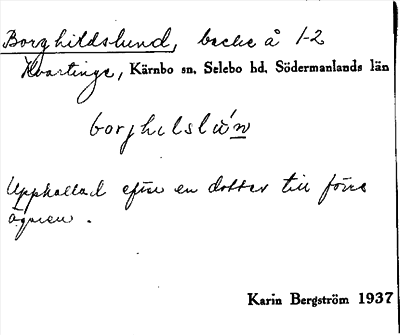 Borghildslund, backe å 1-2
Kvartinge, Kärnbo sn. Selebo hd. Södermanlands län
borghilslún
Uppkallad efter en dotter till förre
ägaren.
Karin Bergström 1937